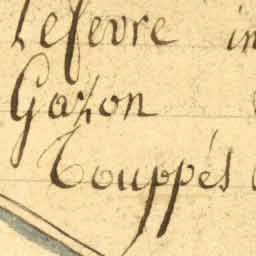 Lefevre in
Gazon
Touppés